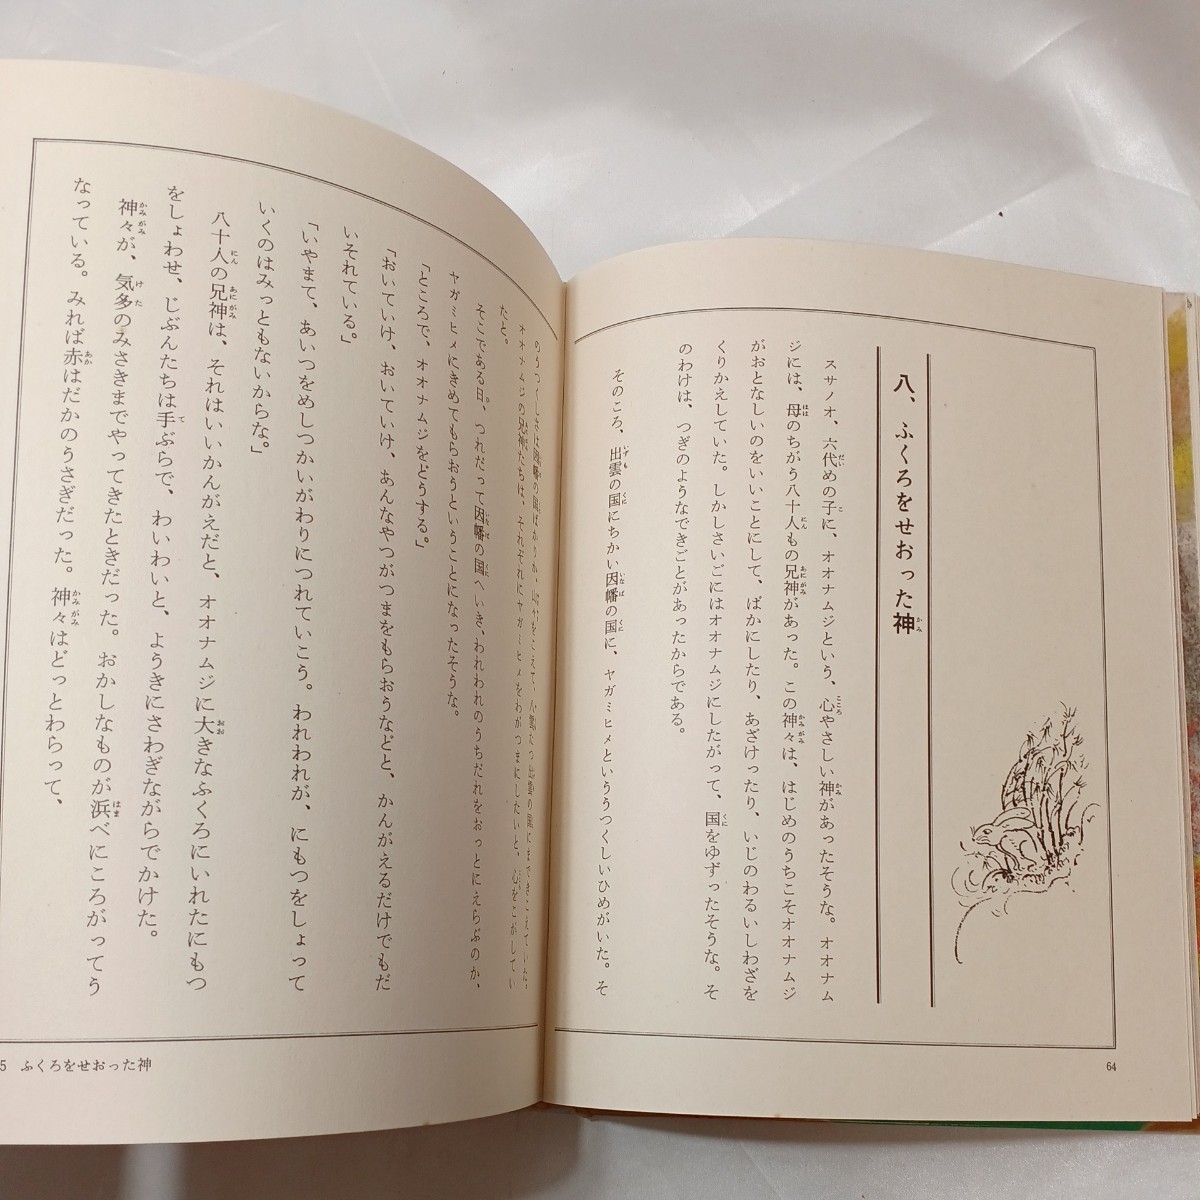 八、ふくろをせおった神
スサノオ、六代めの子に、オオナムジという、心やさしい神があったそうな。オオナム
ジには、母のちがう八十人もの兄神があった。この神々は、はじめのうちこそオオナムジ
がおとなしいのをいいことにして、ばかにしたり、あざけったり、いじのわるいしわざを
くりかえしていた。しかしさいごにはオオナムジにしたがって、国をゆずったそうな。そ
のわけは、つぎのようなできごとがあったからである。
そのころ、出雲の国にちかい因幡の国に、ヤガミヒメといううつくしいひめがいた。そ
64
のうつくしさは因幡の国ばかりか、山々をこえて、八雲たつ出雲の国にまできこえていた。
オオナムジの兄神たちは、それぞれにヤガミヒメをわがつまにしたいと、心をこがしてい
たと。
そこである日、つれだって因幡の国へいき、われわれのうちだれをおっとにえらぶのか、
ヤガミヒメにきめてもらおうということになったそうな。
「ところで、オオナムジをどうする。」
「おいていけ、おいていけ、あんなやつがつまをもらおうなどと、かんがえるだけでもだ
いそれている。」
「いやまて、あいつをめしつかいがわりにつれていこう。われわれが、にもつをしょって
いくのはみっともないからな。」
八十人の兄神は、それはいいかんがえだと、オオナムジに大きなふくろにいれたにもつ
をしょわせ、じぶんたちは手ぶらで、わいわいと、ようきにさわぎながらでかけた。
神々が、気多のみさきまでやってきたときだった。おかしなものが浜べにころがってう
なっている。みれば赤はだかのうさぎだった。神々はどっとわらって、
5 ふくろをせおった神